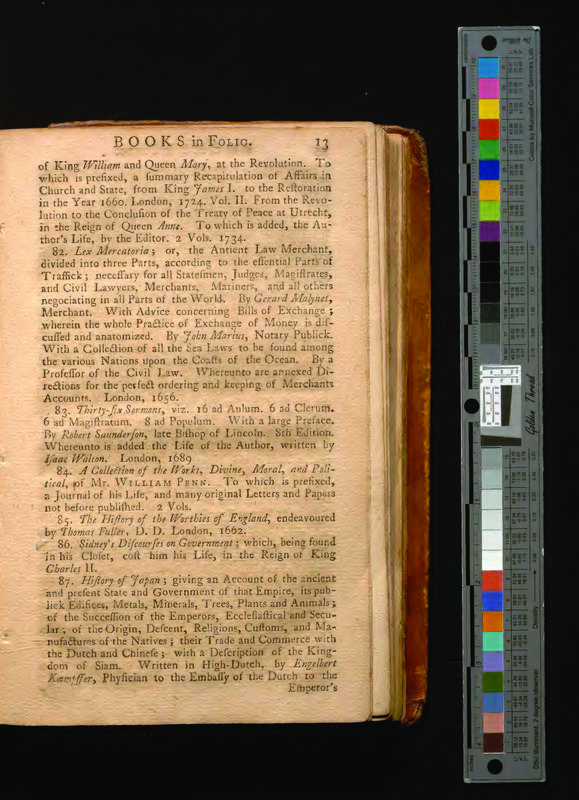 BOOKS in Folio. 13
of King William and Queen Mary, at the Revolution. To
which is prefixed, a summary Recapitulation of Affairs in
Church and State, from King James I. to the Restoration
in the Year 1660. London, 1724. Vol. II. From the Revo-
lution to the Conclusion of the Treaty of Peace at Utrecht,
in the Reign of Queen Anne. To which is added, the Au-
thor's Life, by the Editor. 2 Vols. 1734.
82. Lex Mercatoria; or, the Antient Law Merchant,
divided into three Parts, according to the essential Parts of
Traffick; necessary for all Statesmen, Judges, Magistrates,
and Civil Lawyers, Merchants, Mariners, and all others
negociating in all Parts of the World. By Gerard Malynes,
Merchant. With Advice concerning Bills of Exchange;
wherein the whole Practice of Exchange of Money is dis-
cussed and anatomized. By John Marius, Notary Publick.
With a Collection of all the Sea Laws to be found among
the various Nations upon the Coasts of the Ocean. By a
Professor of the Civil Law. Whereunto are annexed Di-
rections for the perfect ordering and keeping of Merchants
Accounts. London, 1656.
83. Thirty-six Sermons, viz. 16 ad Aulum. 6 ad Clerum.
6 ad Magistratum. 8 ad Populum. With a large Preface.
By Robert Saunderson, late Bishop of Lincoln. 8th Edition.
Whereunto is added the Life of the Author, written by
Isaac Walton. London, 1689
84. A Collection of the Works, Divine, Moral, and Poli-
tical, of Mr. William Penn. To which is prefixed,
a Journal of his Life, and many original Letters and Papers
not before published. 2 Vols.
85. The History of the Worthies of England, endeavoured
by Thomas Fuller, D. D. London, 1662.
86. Sidney's Discourses on Government; which, being found
in his Closet, cost him his Life, in the Reign of King
Charles II.
87. History of Japan; giving an Account of the ancient
and present State and Government of that Empire, its pub-
lick Edifices, Metals, Minerals, Trees, Plants and Animals;
of the Succession of the Emperors, Ecclesiastical and Secu-
lar; of the Origin, Descent, Religions, Customs, and Ma-
nufactures of the Natives; their Trade and Commerce with
the Dutch and Chinese; with a Description of the King-
dom of Siam. Written in High-Dutch, by Engelbert
Kæmpffer, Physician to the Embassy of the Dutch to the
Emperor's
Colors by Munsell Color Services Lab
Golden Thread
Density
D50 Illuminant, 2 degree observer